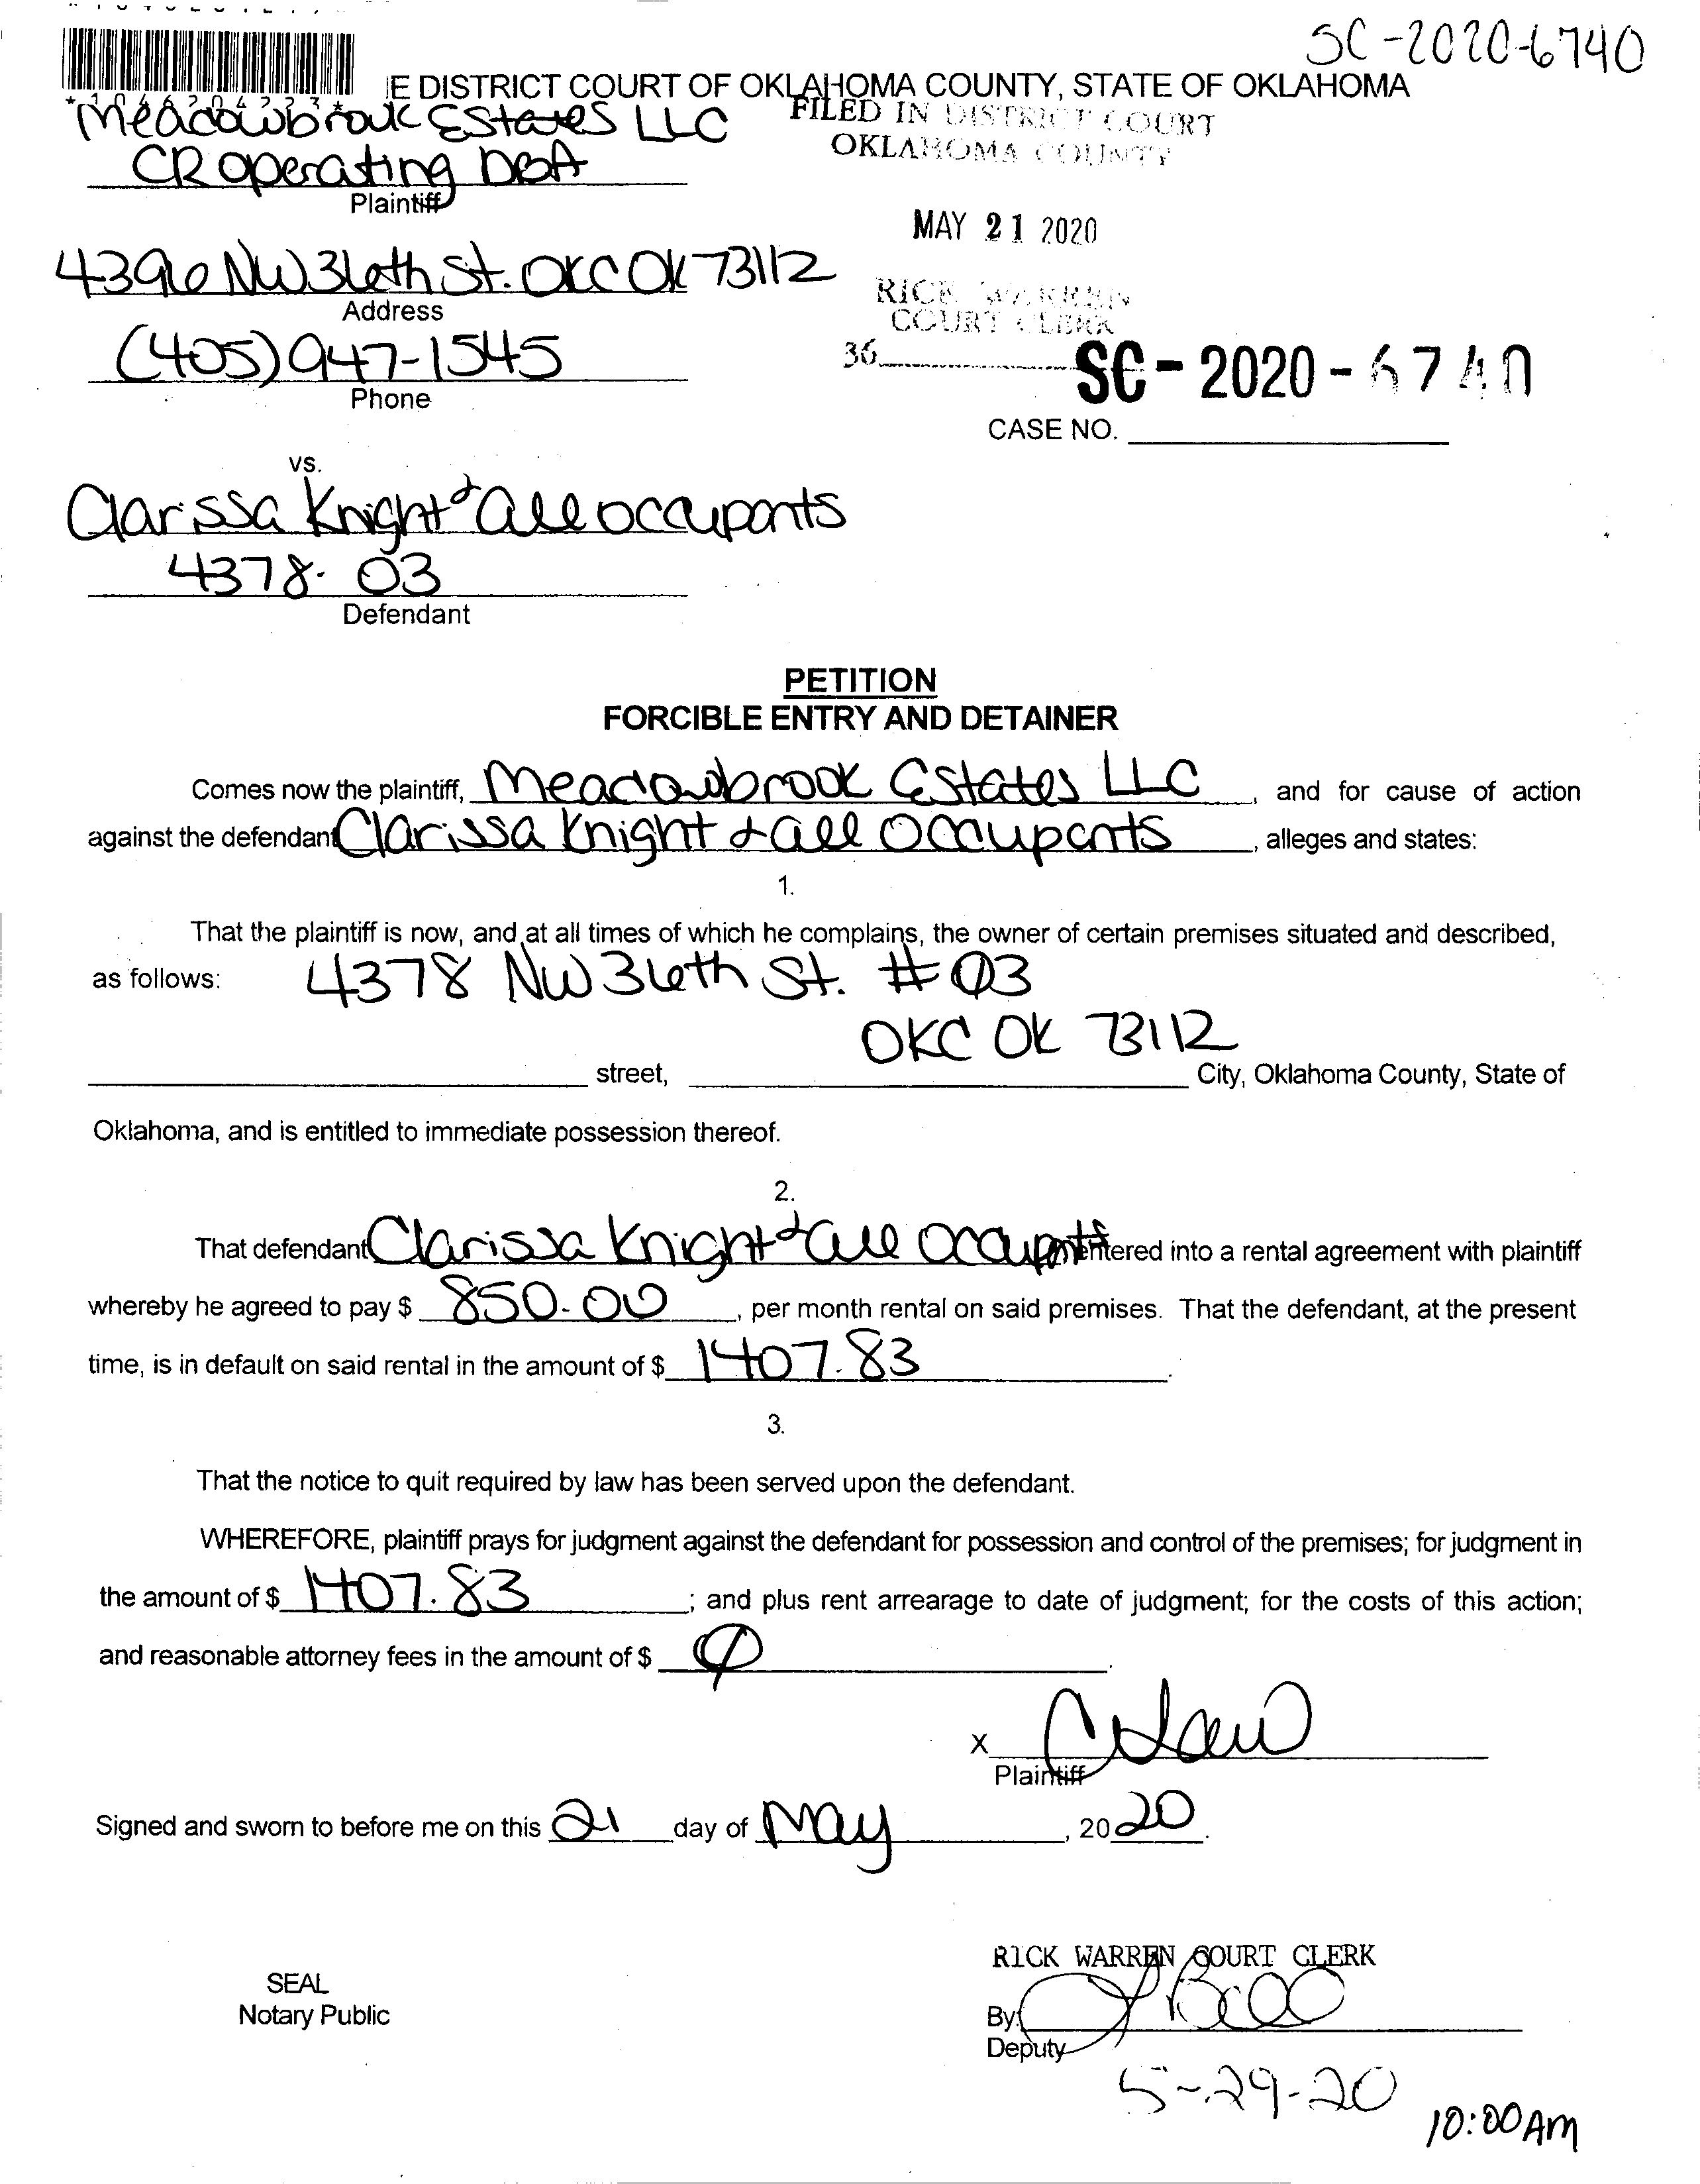 SC-2020-6740
*1046204223*
E DISTRICT COURT OF OKLAHOMA COUNTY, STATE OF OKLAHOMA
Meadowbrook Estates LLC
FILED IN DISTRICT COURT
OKLAHOMA COUNTY
CR operating DBA
Plaintiff
MAY 21 2020
4396 NW 36th St. OKC OK 73112
Address
RICK WARREN
COURT CLERK
(405) 947-1545
Phone
36
SC-2020-6740
CASE NO.
vs.
Clarissa Knight & all occupants
4378-03
Defendant
PETITION
FORCIBLE ENTRY AND DETAINER
Comes now the plaintiff, Meadowbrook Estates LLC, and for cause of action
against the defendant Clarissa Knight & all Occupants, alleges and states:
1.
That the plaintiff is now, and at all times of which he complains, the owner of certain premises situated and described,
as follows: 4378 NW 36th St. #03
OKC OK 73112
street, City, Oklahoma County, State of
Oklahoma, and is entitled to immediate possession thereof.
2.
That defendant Clarissa Knight & all Occupants entered into a rental agreement with plaintiff
whereby he agreed to pay $ 850.00, per month rental on said premises. That the defendant, at the present
time, is in default on said rental in the amount of $ 1407.83.
3.
That the notice to quit required by law has been served upon the defendant.
WHEREFORE, plaintiff prays for judgment against the defendant for possession and control of the premises; for judgment in
the amount of $ 1407.83; and plus rent arrearage to date of judgment; for the costs of this action;
and reasonable attorney fees in the amount of $ 0.
X
Plaintiff
Signed and sworn to before me on this 21 day of May, 2020.
RICK WARREN COURT CLERK
SEAL
Notary Public
By:
Deputy
5-29-20
10:00AM